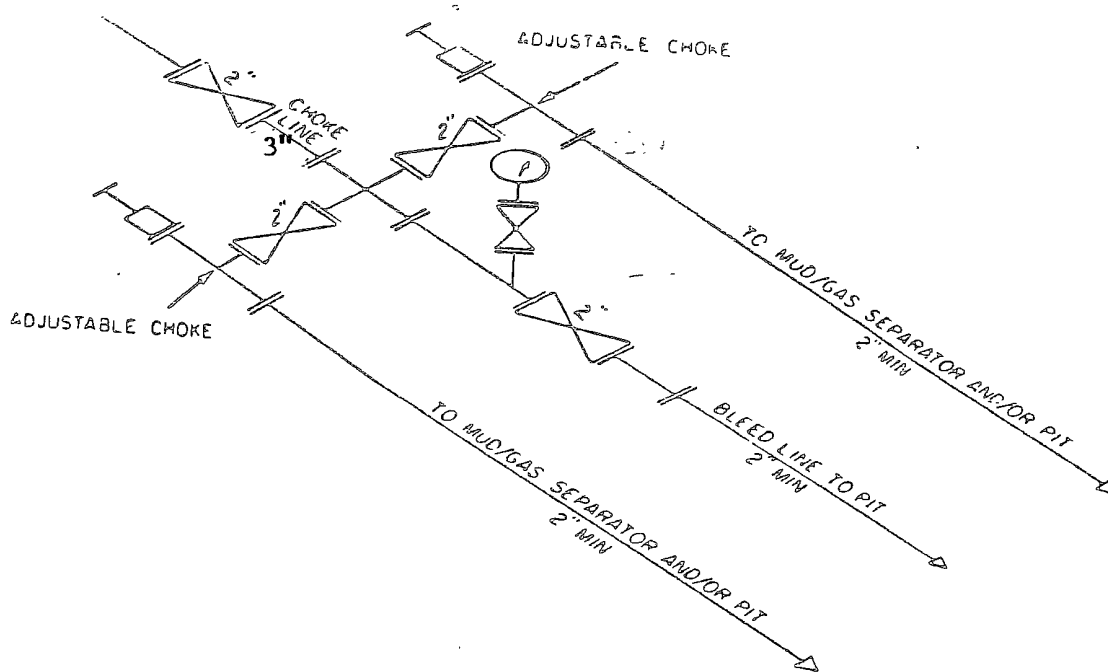 ADJUSTABLE CHOKE
2"
CHOKE
LINE
3"
2"
2"
ADJUSTABLE CHOKE
2"
TO MUD/GAS SEPARATOR AND/OR PIT
2" MIN
BLEED LINE TO PIT
2" MIN
TO MUD/GAS SEPARATOR AND/OR PIT
2" MIN